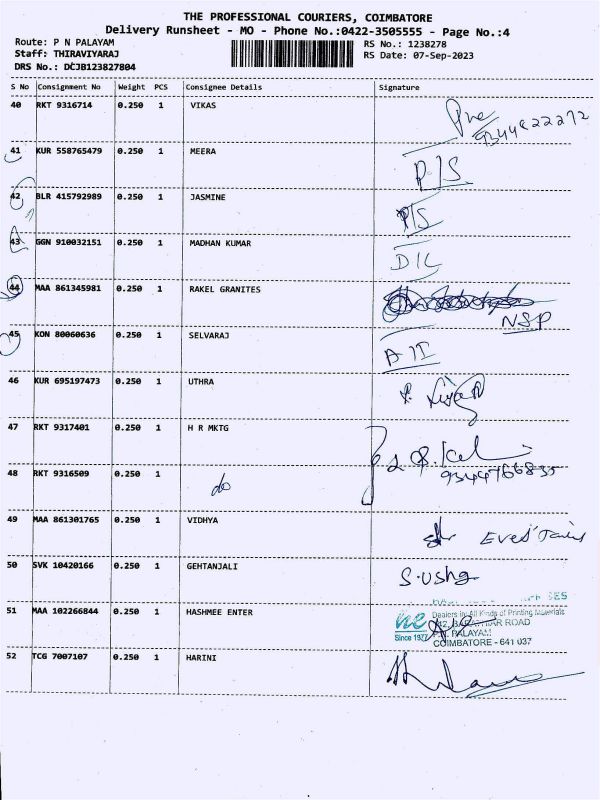 THE PROFESSIONAL COURIERS, COIMBATORE
Delivery Runsheet - MO - Phone No.:0422-3505555 - Page No.:4
Route: P N PALAYAM
RS No.: 1238278
Staff: THIRAVIYARAJ
RS Date: 07-Sep-2023
DRS No.: DCJB123827804
S No Consignment No Weight PCS Consignee Details Signature
40 RKT 9316714 0.250 1 VIKAS
9344822272
41 KUR 558765479 0.250 1 MEERA
P/S
42 BLR 415792989 0.250 1 JASMINE
P/S
43 GGN 910032151 0.250 1 MADHAN KUMAR
D/L
44 MAA 861345981 0.250 1 RAKEL GRANITES
NSP
45 KON 80060636 0.250 1 SELVARAJ
46 KUR 695197473 0.250 1 UTHRA
47 RKT 9317401 0.250 1 H R MKTG
9344766835
48 RKT 9316509 0.250 1 do
49 MAA 861301765 0.250 1 VIDHYA
50 SVK 10420166 0.250 1 GEHTANJALI S.Usha
51 MAA 102266844 0.250 1 HASHMEE ENTER
Dealers in: All Kinds of Printing Materials
he ROAD
Since 1977 P.N. PALAYAM
COIMBATORE - 641 037
52 TCG 7007107 0.250 1 HARINI